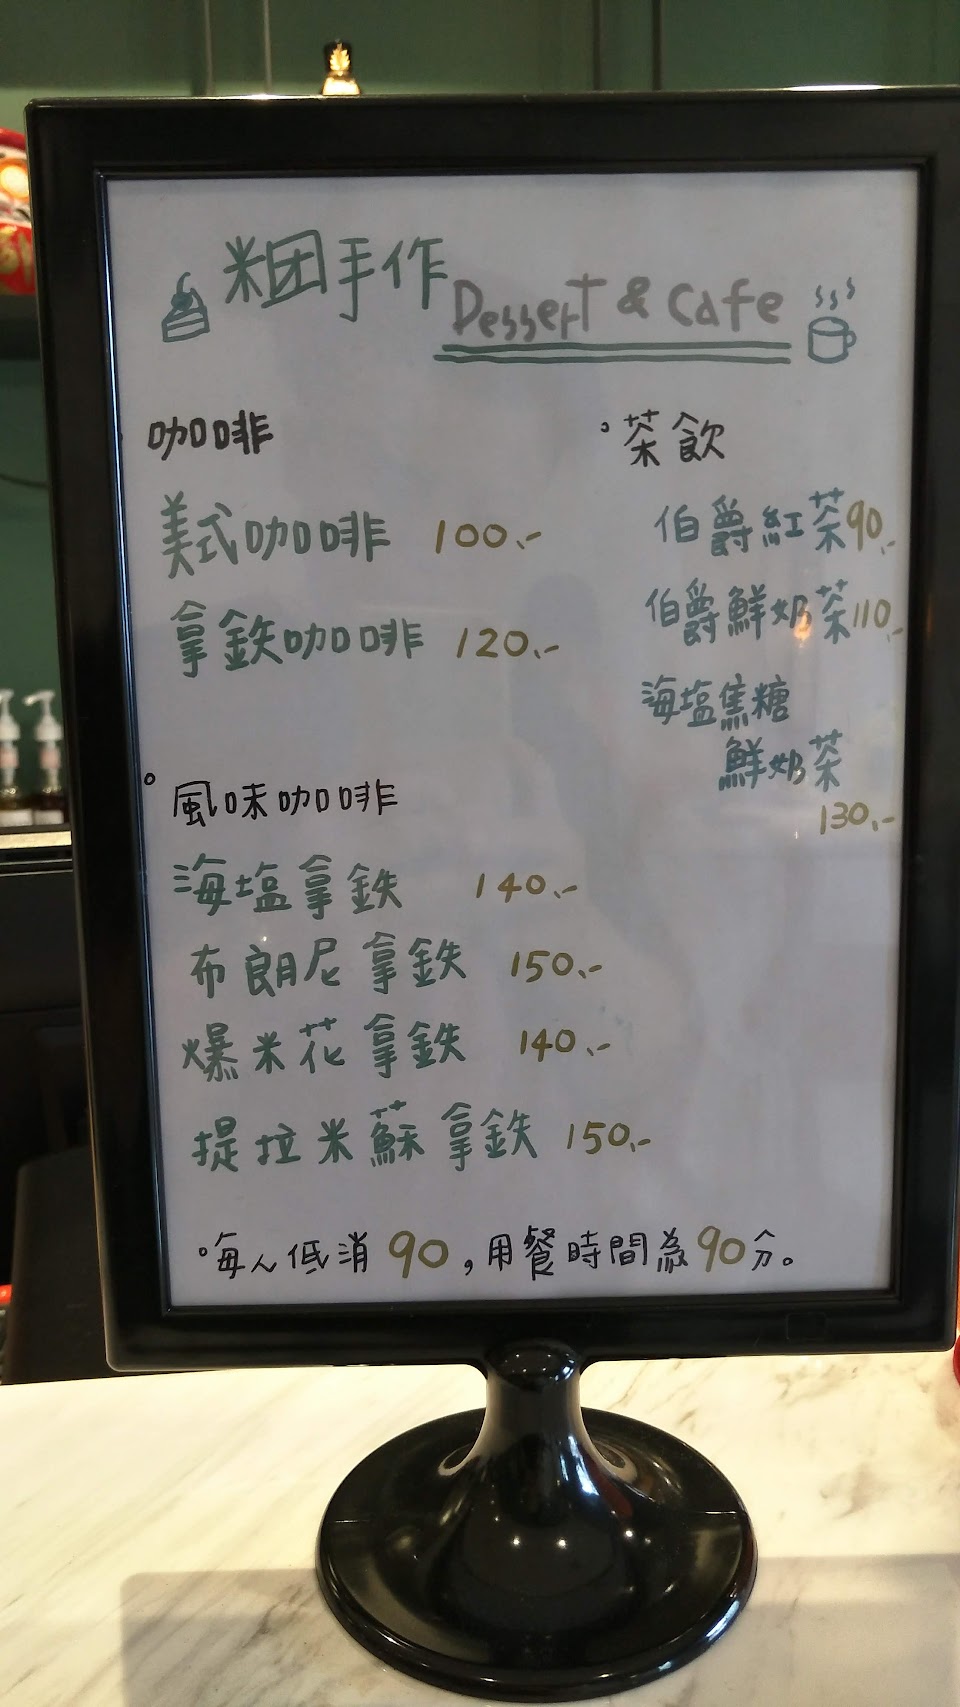 米团手作
Dessert & Cafe
咖啡
美式咖啡 100.-
拿鉄咖啡 120.-
風味咖啡
海塩拿鉄 140.-
布朗尼拿鉄 150.-
爆米花拿鉄 140.-
提拉米蘇拿鉄 150.-
茶飲
伯爵紅茶90.-
伯爵鮮奶茶110.-
海塩焦糖
鮮奶茶
130.-
每人低消 90,用餐時間為90分。